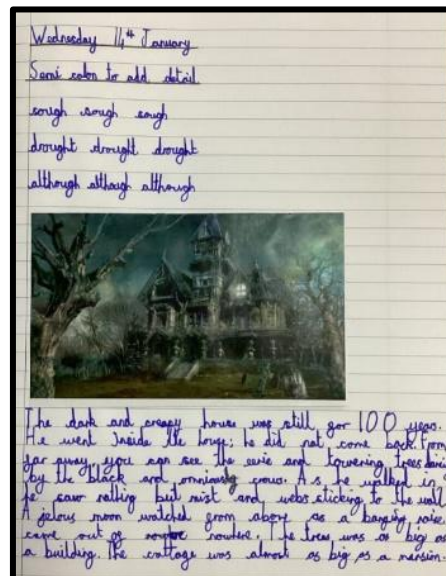 Wednesday 14th January
Semi colon to add detail
cough cough cough
drought drought drought
although although although
The dark and creepy house was still for 100 years.
He went inside the house; he did not come back. From
far away, you can see the eerie and towering trees
by the black and crows. As he walked in,
he saw nothing but mist and webs sticking to the wall.
A jelous moon watched from above as a banging noise
came out of nowhere. The trees was as big as
a building. The cottage was almost as big as a mansion.